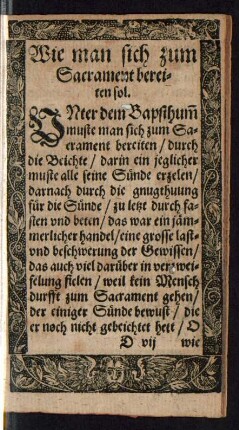 Wie man sich zum
Sacrament berei-
ten sol.
VNter dem Bapsthum̃
muste man sich zum Sa-
crament bereiten / durch
die Beichte / darin ein jeglicher
muste alle seine Sünde erzelen /
darnach durch die gnugthuung
für die Sünde / zu letzt durch fa-
sten vnd beten / das war ein jäm-
merlicher handel / eine grosse last-
vnd beschwerung der Gewissen /
das auch viel darüber in verzwei-
felung fielen / weil kein Mensch
durfft zum Sacrament gehen /
der einiger Sünde bewust / die
er noch nicht gebeichtet hett / O
O vij wie